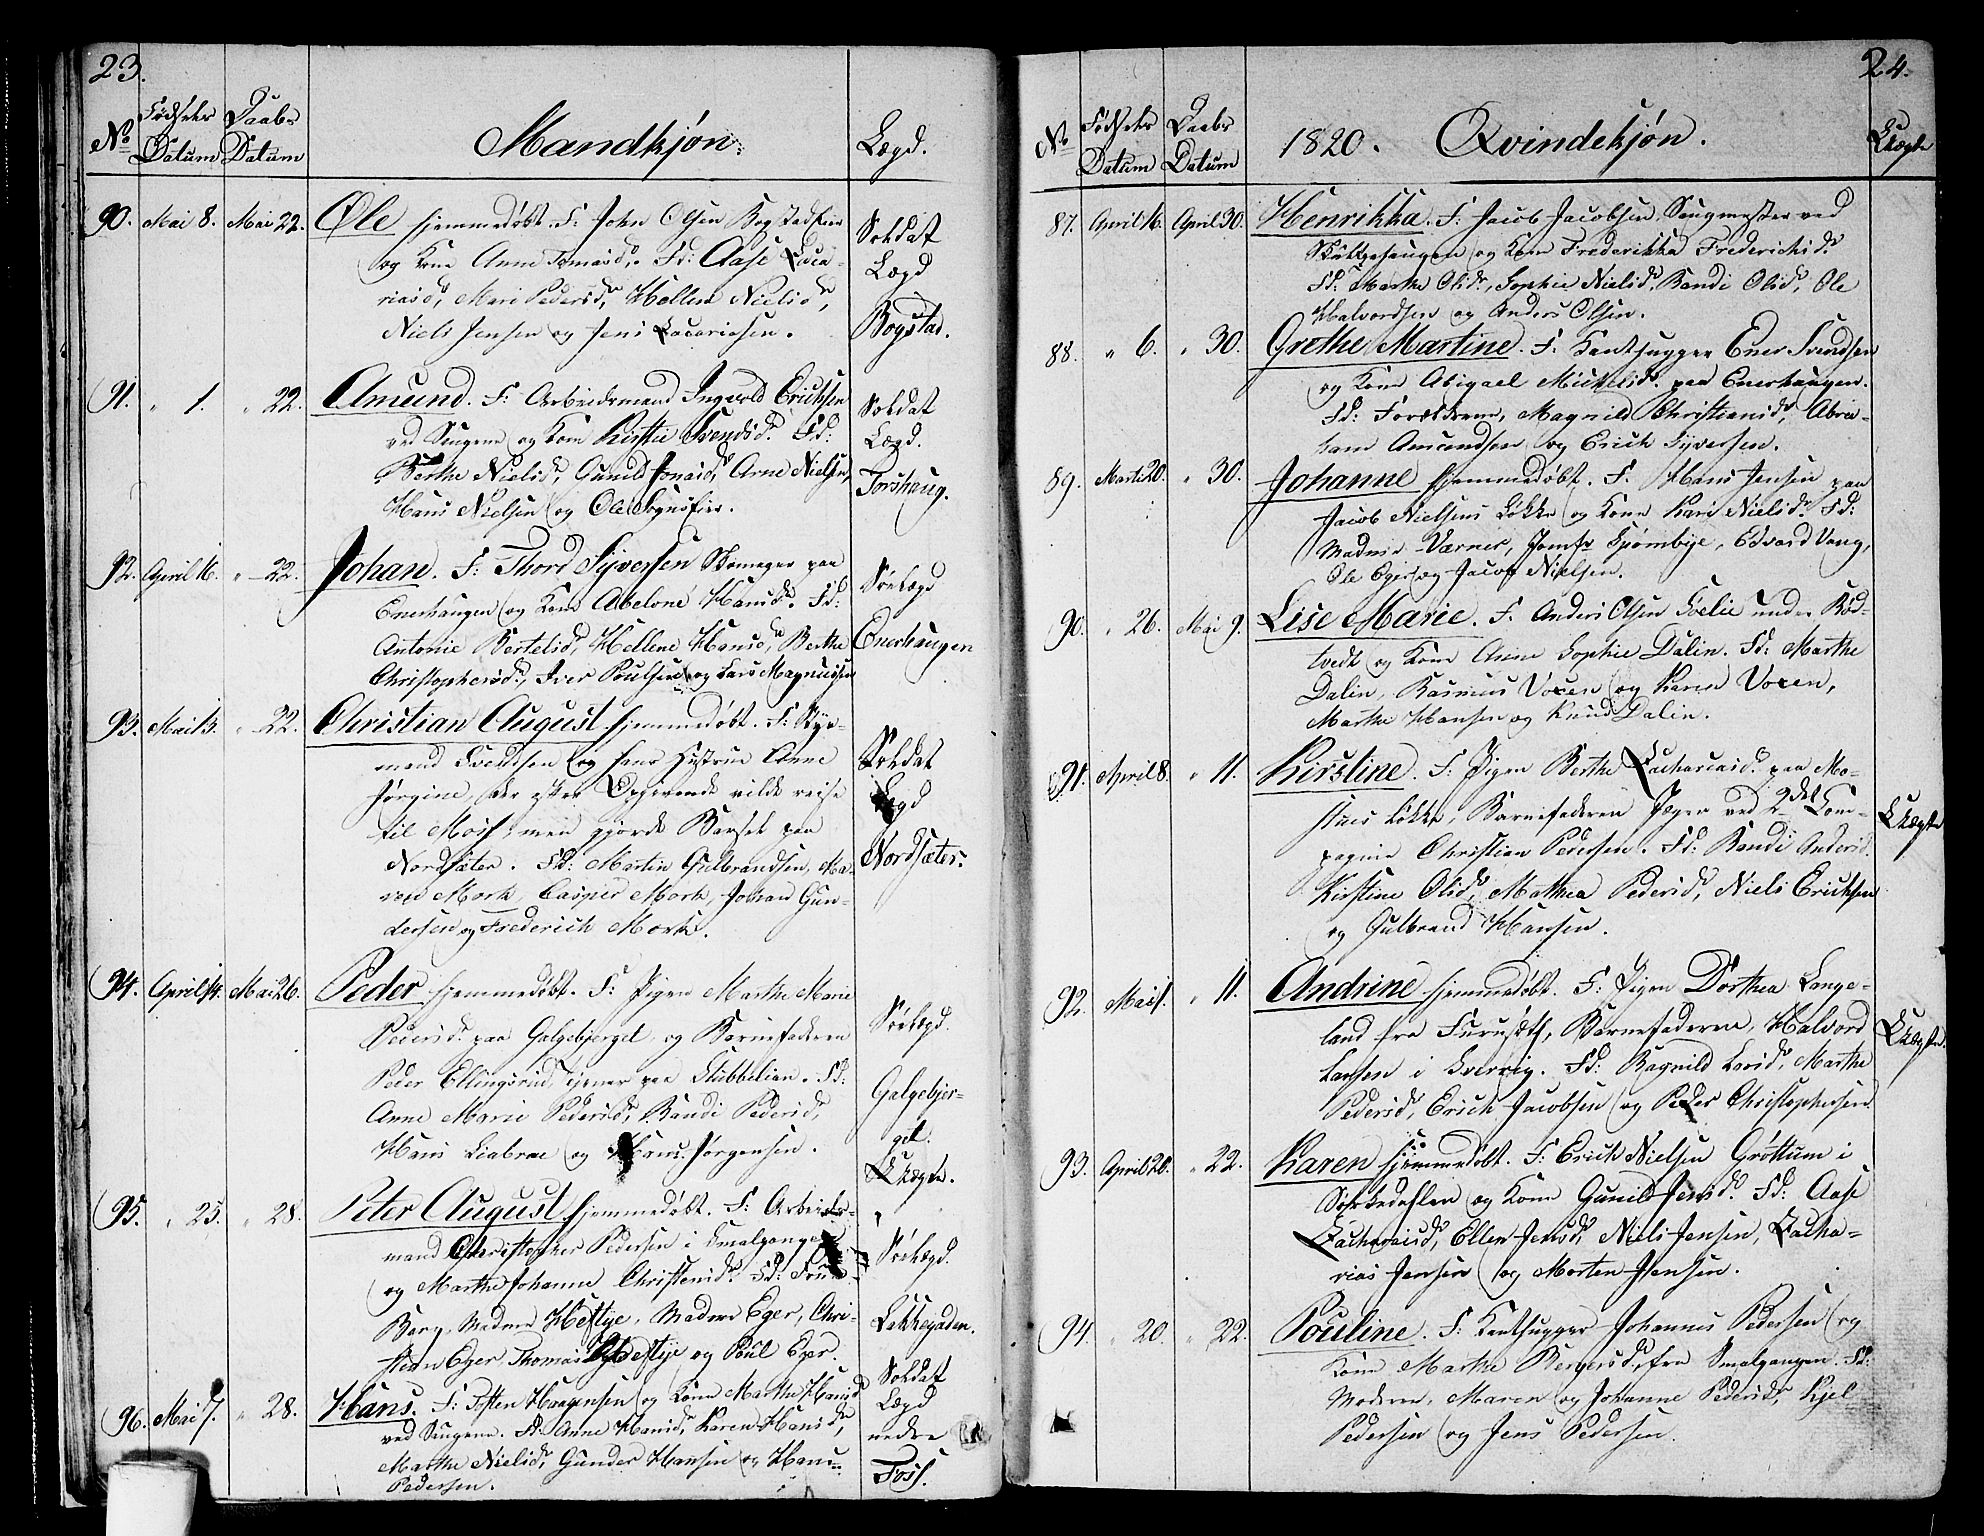 23.
No Fødsels Datum Daabs Datum Mandkjøn: Lægd.
90. Mai 8. Mai 22. Ole hjemmedøbt. F: John Olsen Bogstadeier
og Kone Anne Tomasd. Fd: Aase Zaca-
riasd, Mari Pedersd, Hellene Nielsd,
Niels Jensen og Jens Zacariasen.
Soldat
Lægd
Bogstad.
91. " 1. " 22. Amund. F: Arbeidsmand Ingvold Erichsen
ved Saugene og Kone Kirstie Svendsd. Fd:
Berthe Nielsd, Gunild Jonasd, Arne Nielsen,
Hans Nielsen og Ole Sognsfier.
Soldat
Lægd.
Torshaug.
92. April 16. " 22. Johan. F: Thord Syversen Skomager paa
Enerhaugen og Kone Abelone Hansd. Fd:
Antonie Bertelsd, Hellene Hansd, Berthe
Christophersd, Iver Poulsen og Lars Magnussen
Sølægd
Enerhaugen
93. Mai 13. " 22. Christian August hjemmedøbt. F: Styr-
mand Svendsen og hans Hustrue Anne
Jørgine, der efter Opgivende vilde reise
til Moss, men gjorde Barsel paa
Nordsæter. Fd: Martin Gulbrandsen, Ma-
ren Mork, Casper Mork, Johan Gun-
dersen og Frederich Mork.
Soldat
Lægd
Nordsæter.
94. April 14. Mai 26. Peder hjemmedøbt. F: Pigen Marthe Marie
Pedersd. paa Galgebjerget og Barnefaderen
Peder Ellingsrud, tjener paa Stubbelian. Fd:
Anne Marie Pedersd, Randi Pedersd,
Hans Liabrae og Hans Jørgensen.
Sølægd.
Galgebjer-
get.
Uægte.
95. " 25. " 28. Peter August hjemmedøbt. F: Arbeids-
mand Christopher Pedersen i Smalgangen
og Marthe Johanne Christensd. Fd:
Berg, Madme Heftye, Madme Eger, Chri-
stian Eger, Thomas Heftye og Poul Eger.
Sølægd.
Lakkegaden.
96. Mai 7. " 28. Hans. F: Tosten Haagensen og Kone Marthe Hansd
ved Saugene. Fd: Anne Hansd, Karen Hansd,
Marthe Nielsd, Gunder Hansen og Hans
Pedersen.
Soldat
Lægd
nedre
Foss.
24.
No Fødsels Datum Daabs Datum 1820. Qvindekjøn. Uægte
87. April 16. April 30. Henrikka. F: Jacob Jacobsen Saugmester ved
og Kone Frederikka Frederichsd.
Fd. Marthe Olsd, Sophie Nielsd, Randi Olsd, Ole
Halvordsen og Anders Olsen.
88. " 6. " 30. Grethe Martine. F: Kanthugger Ener Svendsen
og Kone Abigael Mickelsd. paa Enerhaugen.
Fd: Forældrene, Magnild Christiansd, Abra-
ham Amundsen og Erich Syversen.
89. Marti 20. " 30. Johanne hjemmedøbt. F. Hans Jensen paa
Jacob Nielsens Løkke og Kone Kari Nielsd. Fd:
Madme Værner, Jomfr Spømbye, Edvard Vang,
Ole Eger og Jacob Nielsen.
90. " 26. Mai 9. Lise Marie. F. Anders Olsen Svelie under Rød-
tvedt og Kone Anne Sophie Dalin. Fd: Marthe
Dalin, Rasmus Voxen og Karen Voxen,
Marthe Hansen og Knud Dalin.
91. April 8. " 11. Kirstine. F. Pigen Berthe Zachariasd. paa Mo-
sties Løkke, Barnefaderen Jæger ved 2det Com-
pagnie Christian Pedersen. Fd: Randi Andersd
Kirstine Olsd, Mathea Pedersd, Niels Erichsen
og Gulbrand Hansen.
Uægte
92. Mai 1. " 11. Andrine hjemmedøbt. F. Pigen Dorthea Lange-
land fra Furuseth, Barnefaderen Halvord
Larsen i Sverrig. Fd: Ragnild Larsd, Marthe
Pedersd, Erich Jacobsen og Peder Christophersen.
Uægte.
93. April 20. " 22. Karen hjemmedøbt. F: Erich Nielsen Grøttum i
Sørkedahlen og Kone Gunild Jensd. Fd: Aase
Zachariasd, Ellen Jensd, Niels Jensen, Zacha-
rias Jensen og Morten Jensen.
94. " 20. " 22. Pouline. F: Kanthugger Johannes Pedersen og
Kone Marthe Bergersd, fra Smalgangen. Fd:
Moderen, Maren og Johanne Pedersd, Kjel
Pedersen og Jens Pedersen.